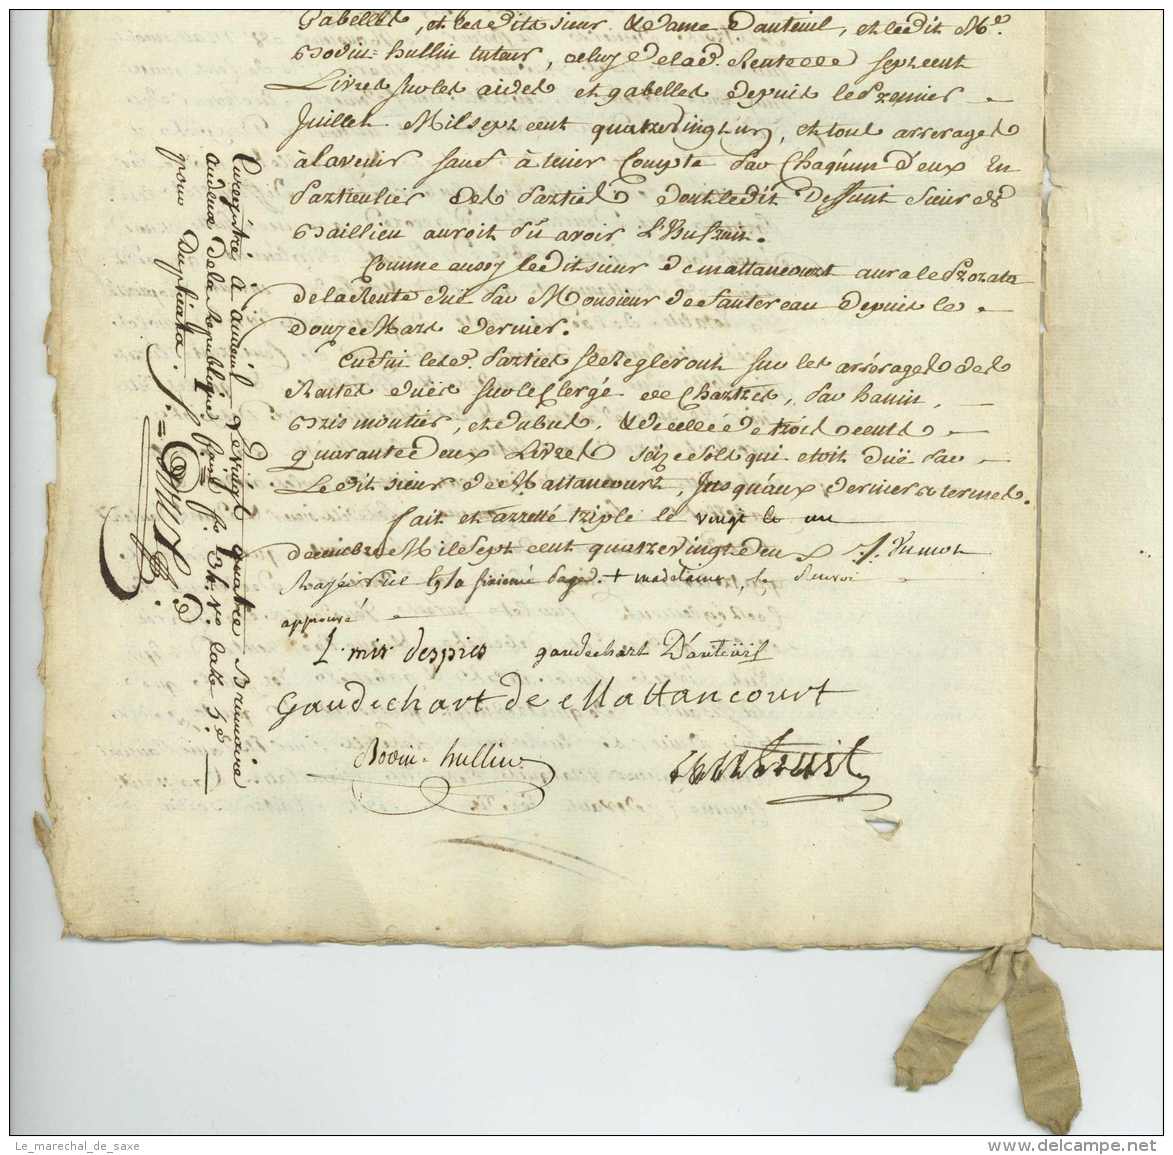 Gabelles, et lesdits sieur & dame Dauteuil, et ledit Me.
Bodin-hullin tuteur, celuy de lad. Rente de sept cent
Livres sur les aides et gabelles depuis le Premier
Juillet Mil sept cent quatrevingt un, et tous arrerages
à l'avenir sauf à tenir Compte par Chaqu'un d'eux En
Particulier des Parties dont ledit deffunt sieur de
Baillieu auroit pû avoir
Comme aussy ledit sieur de mattancourt aura le Prorata
de la Rente duë par Monsieur de Sautereau depuis le
douze Mars dernier.
Enfin lesd. Parties se Regleront sur les arrérages des
Rentes duës sur le Clergé de Chartres, par hanin,
Brismontier, et dubus, & de celle de trois cents
quarante deux Livres seize sols qui etoit duë par
Ledit sieur de Mattancourt, Jusqu'aux derniers termes.
fait et arretté triple le vingt le un
decembre Mil sept cent quatrevingt deux
Rayé nul + madelaine,
approuvé
L. mis despies gaudechart D'auteuil
Gaudechart de Mattancourt
Bodin-hullin
Enregistré à auneuil le vingt quatre Brumaire
an deux de la Republique
pour Duplicata.